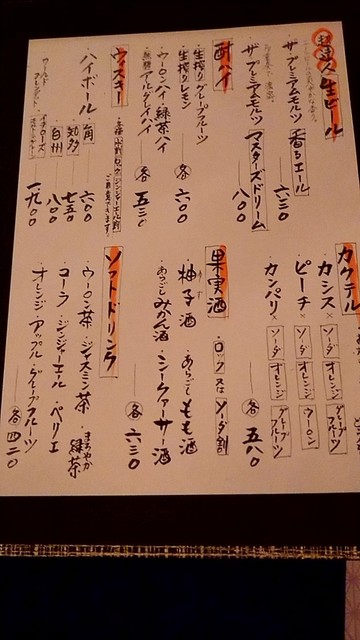 超達人生ビール
ザ プレミアムモルツ 香るエール
六三〇
ザ プレミアムモルツ マスターズドリーム
八〇〇
酎ハイ
生搾りグレープフルーツ
生搾りレモン
各 六〇〇
ウーロンハイ・緑茶ハイ
無糖 アルグレイハイ
各 五三〇
ウィスキー
ハイボール
角 六〇〇
知多 七五〇
白州 八〇〇
ワールドブレンデット
一九〇〇
カクテル
カシス× ソーダ オレンジ グレープフルーツ
ピーチ× ソーダ オレンジ ウーロン
カンパリ× ソーダ オレンジ グレープフルーツ
各 五八〇
果実酒
ロック 又は ソーダ割
柚子酒 あらごしもも酒
あらごしみかん酒 シークァーサー酒
各 六三〇
ソフトドリンク
ウーロン茶・ジャスミン茶 まろやか緑茶
コーラ・ジンジャーエール・ペリエ
オレンジ・アップル・グレープフルーツ
各 四二〇